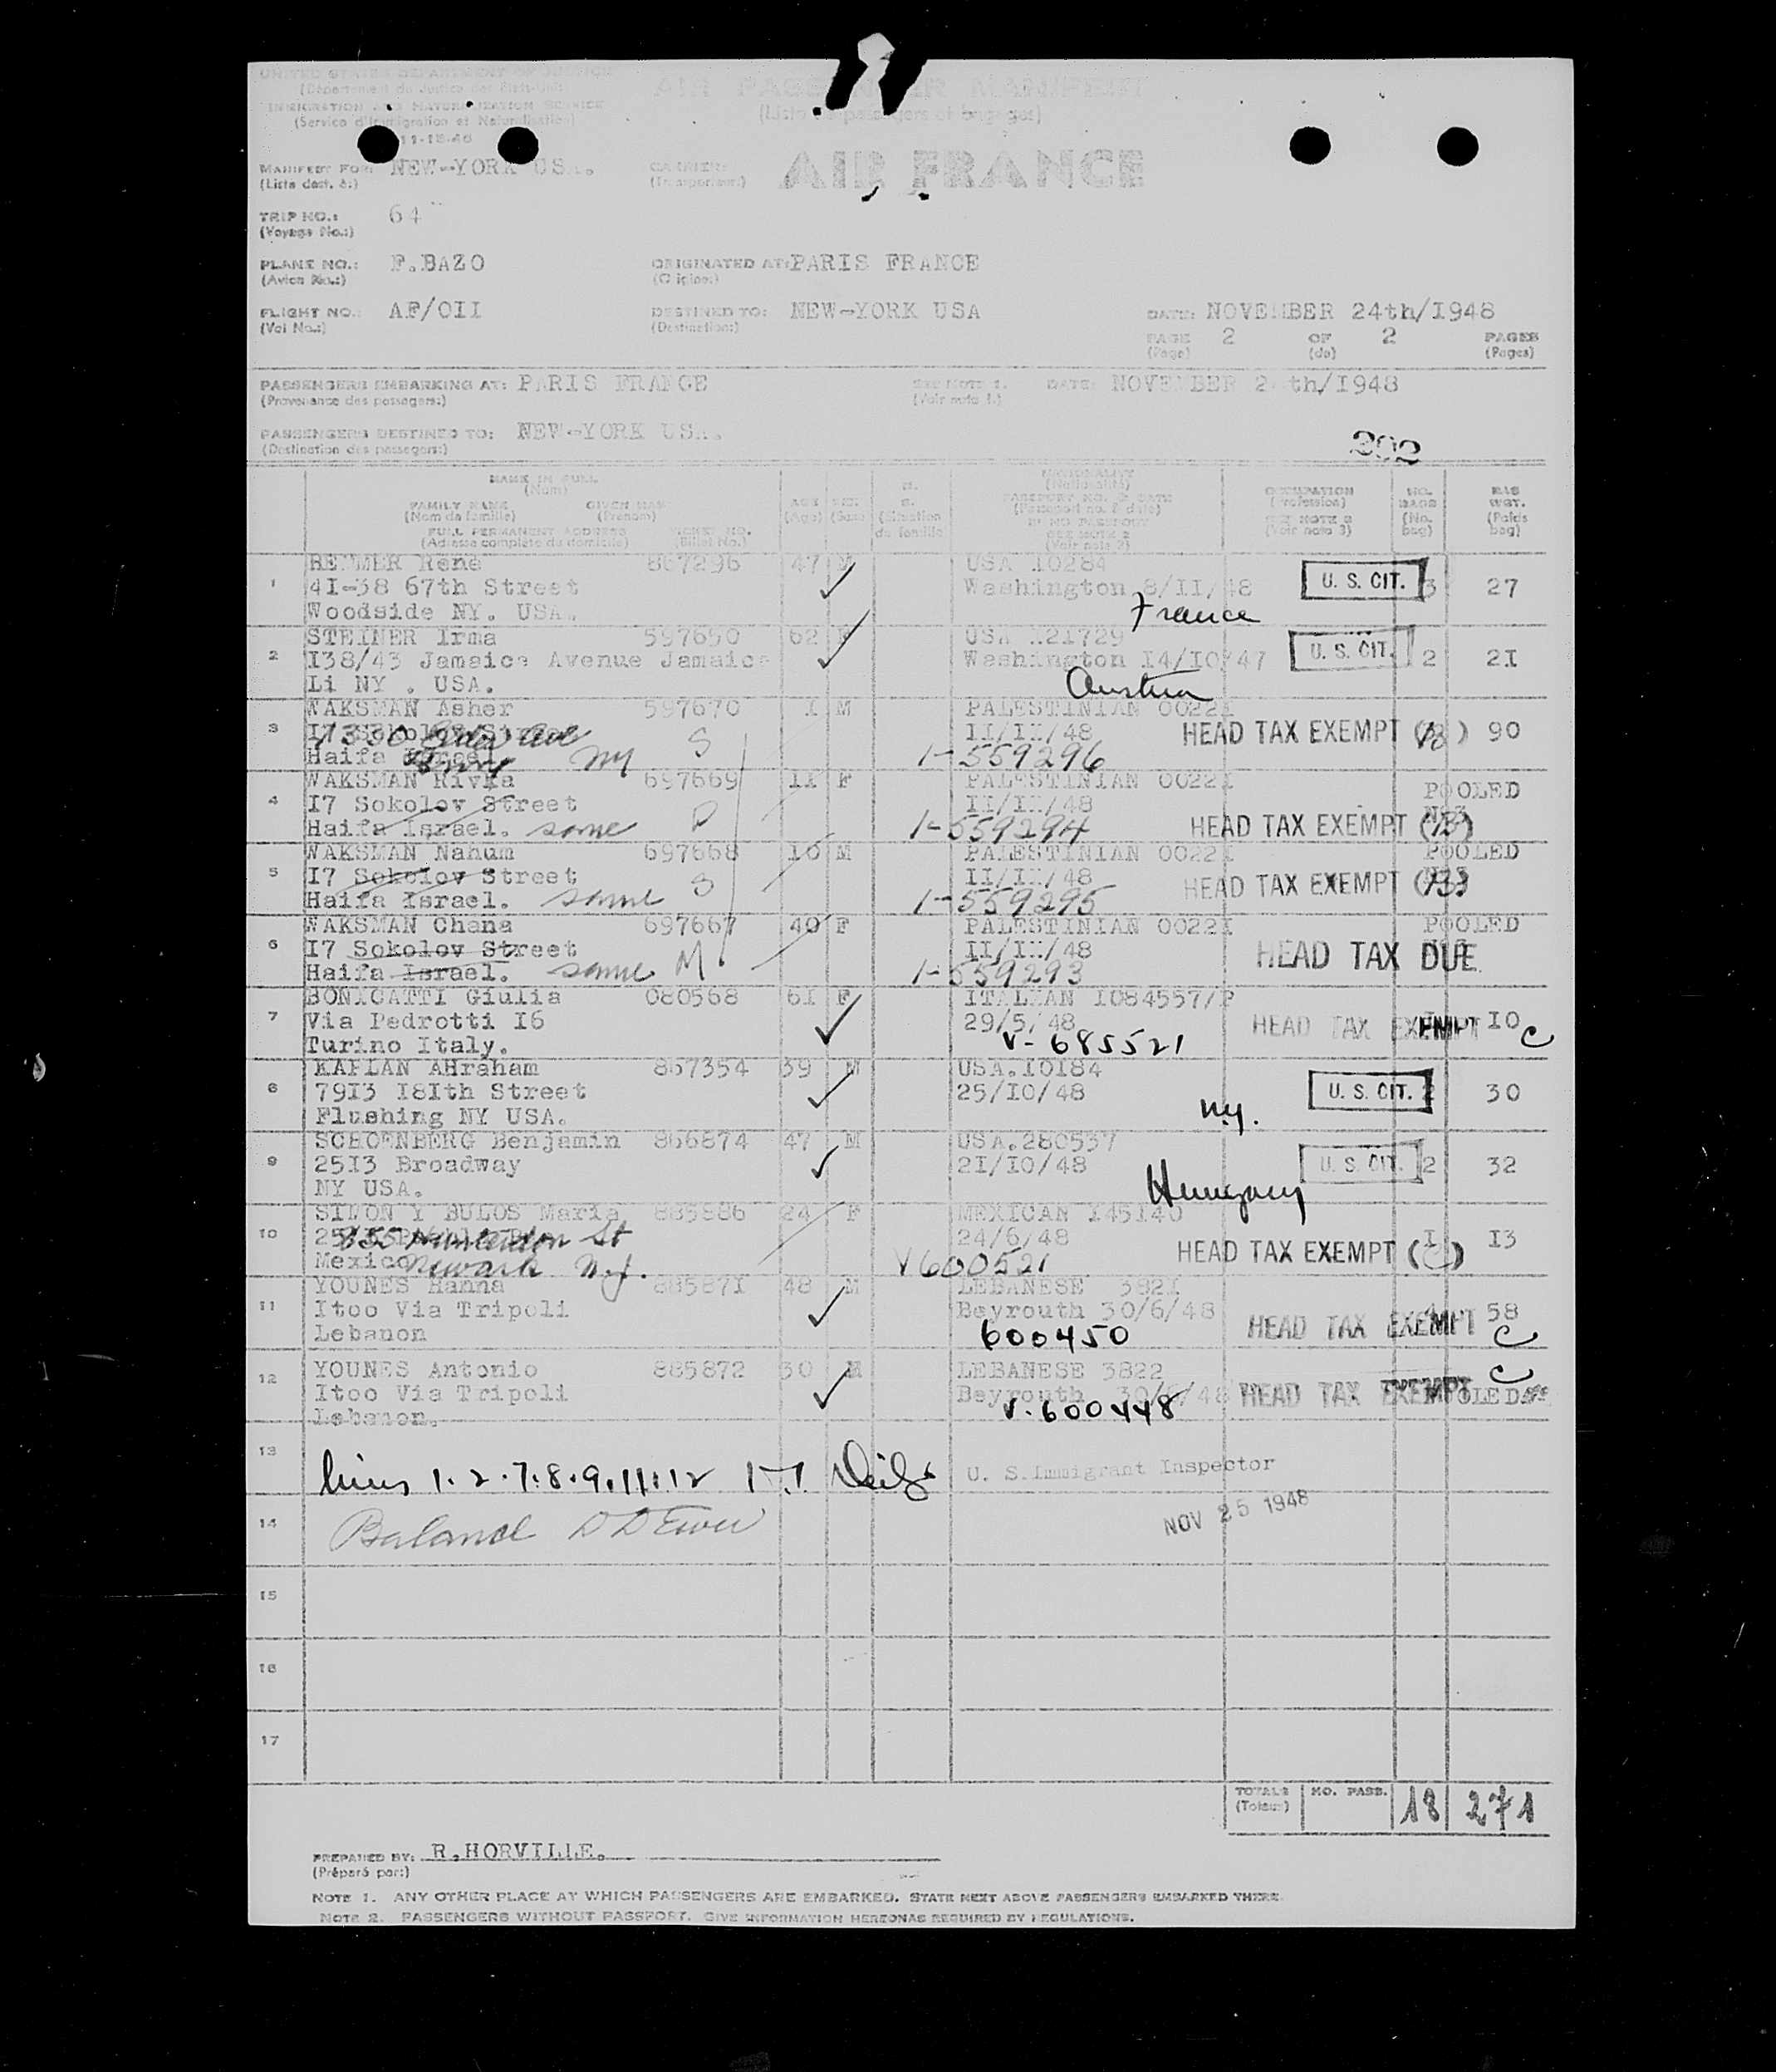 UNITED STATES DEPARTMENT OF JUSTICE
(Département du Justice des États-Unis)
IMMIGRATION AND NATURALIZATION SERVICE
(Service d'Immigration et Naturalisation)
11-18-46
AIR PASSENGER MANIFEST
MANIFEST FOR: NEW-YORK US.
(Liste dest. à:)
CARRIER: AIR FRANCE
(Transporteur:)
TRIP NO.: 64
(Voyage No.:)
PLANE NO.: F.BAZO
(Avion No.:)
ORIGINATED AT: PARIS FRANCE
(Origine:)
FLIGHT NO.: AF/OII
(Vol No.:)
DESTINED TO: NEW-YORK USA
(Destination:)
DATE: NOVEMBER 24th/I948
PAGE 2 OF 2 PAGES
(Page) (de) (Pages)
PASSENGERS EMBARKING AT: PARIS FRANCE
(Provenance des passagers:)
SEE NOTE 1.
(Voir note 1.)
DATE: NOVEMBER 2 th/I948
PASSENGERS DESTINED TO: NEW-YORK US.
(Destination des passagers:)
202
NAME IN FULL
(Nom)
FAMILY NAME GIVEN NAME
(Nom de famille) (Prénom)
FULL PERMANENT ADDRESS TICKET NO.
(Adresse complète du domicile) (Billet No.)
AGE
(Age)
SEX
(Sexe)
(Situation de famille)
NATIONALITY
(Nationalité)
PASSPORT NO. & DATE
(Passeport no. & date)
IF NO PASSPORT
SEE NOTE 2
(Voir note 2)
OCCUPATION
(Profession)
SEE NOTE 3
(Voir note 3)
NO. BAGS
(No. bag)
BAG WGT.
(Poids bag)
1 REMMER René 867296 47 M USA 10284 U. S. CIT. 3 27
4I-38 67th Street Washington 8/II/48
Woodside NY. USA. France
2 STEINER Irma 597690 62 F USA 121729 U. S. CIT. 2 2I
I38/43 Jamaica Avenue Jamaica Washington I4/IO/47
Li NY . USA. Austria
3 WAKSMAN Asher 597670 I M PALESTINIAN 0022I
I7 Sokolov Street S II/IX/48 HEAD TAX EXEMPT (13) 90
Haifa Israel. NY 1-559296
4 WAKSMAN Rivka 697669 II F PALESTINIAN 0022I POOLED
I7 Sokolov Street D II/IX/48 N°3
Haifa Israel. same 1-559294 HEAD TAX EXEMPT (13)
5 WAKSMAN Nahum 697668 IO M PALESTINIAN 0022I POOLED
I7 Sokolov Street S II/IX/48 HEAD TAX EXEMPT (13)
Haifa Israel. same 1-559295
6 WAKSMAN Chana 697667 40 F PALESTINIAN 0022I POOLED
I7 Sokolov Street II/IX/48 HEAD TAX DUE
Haifa Israel. same M 1-559293
7 BONICATTI Giulia 080568 6I F ITALIAN I084557/P
Via Pedrotti I6 29/5/48 HEAD TAX EXEMPT IO C
Turino Italy. V-685521
8 KAPLAN AHraham 867354 39 M USA.IOI84 U. S. CIT. 2 30
79I3 I8Ith Street 25/IO/48
Flushing NY USA. N.Y.
9 SCHOENBERG Benjamin 866874 47 M USA.280537 U. S. CIT. 2 32
25I3 Broadway 2I/IO/48
NY USA. Hungary
10 SIMON Y BULOS Maria 885886 24 F MEXICAN I45I40
24/6/48 HEAD TAX EXEMPT (C) I I3
Mexico Newark N.J. V600521
11 YOUNES Hanna 88587I 48 M LEBANESE 382I
Itoo Via Tripoli Beyrouth 30/6/48 HEAD TAX EXEMPT 4 58
Lebanon 600450 C
12 YOUNES Antonio 885872 30 M LEBANESE 3822 C
Itoo Via Tripoli Beyrouth 30/6/48 HEAD TAX EXEMPT POOLED
Lebanon. V.600448
13 lines 1.2.7.8.9.11.12 U. S.Immigrant Inspector
14 Balance NOV 25 1948
15
16
17
TOTALS NO. PASS. 18 271
(Totaux)
PREPARED BY: R.HORVILLE.
(Préparé par:)
NOTE 1. ANY OTHER PLACE AT WHICH PASSENGERS ARE EMBARKED. STATE NEXT ABOVE PASSENGERS EMBARKED THERE.
NOTE 2. PASSENGERS WITHOUT PASSPORT. GIVE INFORMATION HEREON AS REQUIRED BY REGULATIONS.